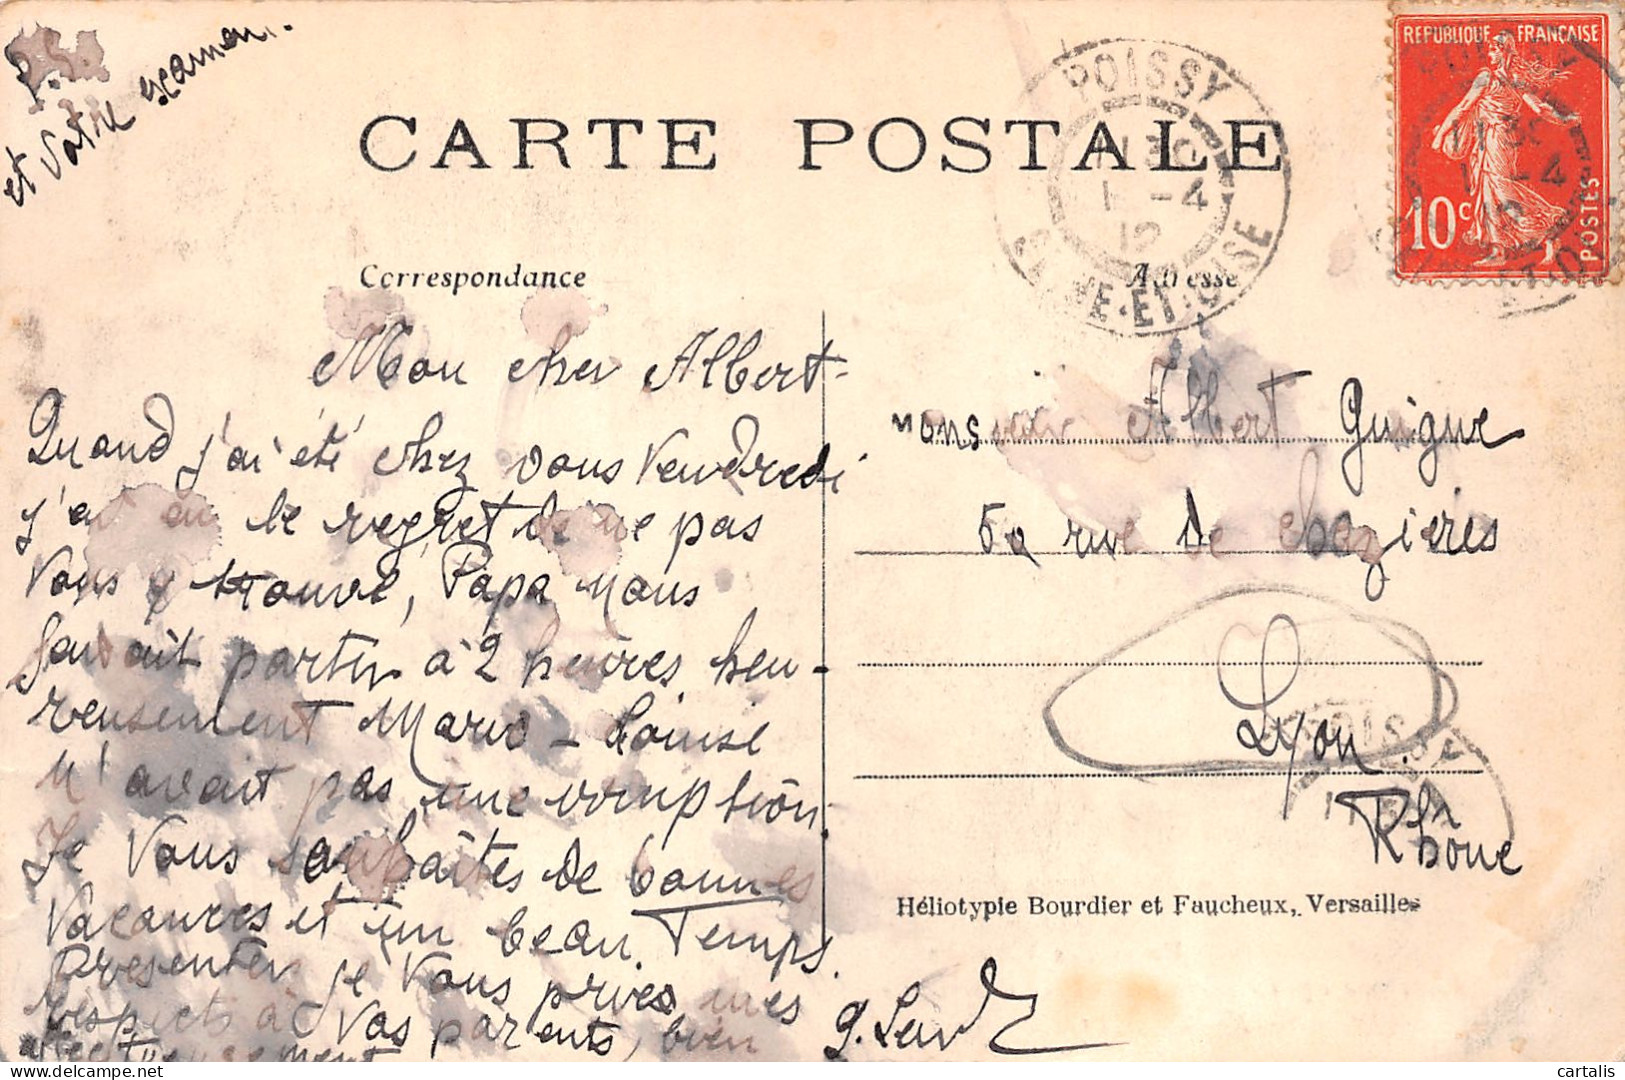 P.S.
et votre examen.
CARTE POSTALE
POISSY
11 30
1 -4
12
SEINE-ET-OISE
REPUBLIQUE FRANÇAISE
10c
POSTES
Correspondance
Adresse
Mon cher Albert-
Quand j'ai été chez vous Vendredi
j'ai eu le regret de ne pas
Vous y trouvé, Papa nous
faisait partir à 2 heures heu-
reusement Marie-Louise
n'avait pas une éruption.
Je Vous souhaites de bonnes
Vacances et un beau Temps.
Presenter je Vous pries mes
respects à Vos parents, bien
affectueusement
Monsieur Albert Guigue
50 rue de chezières
Lyon.
Rhône
POISSY
Héliotypie Bourdier et Faucheux, Versailles
cartalis